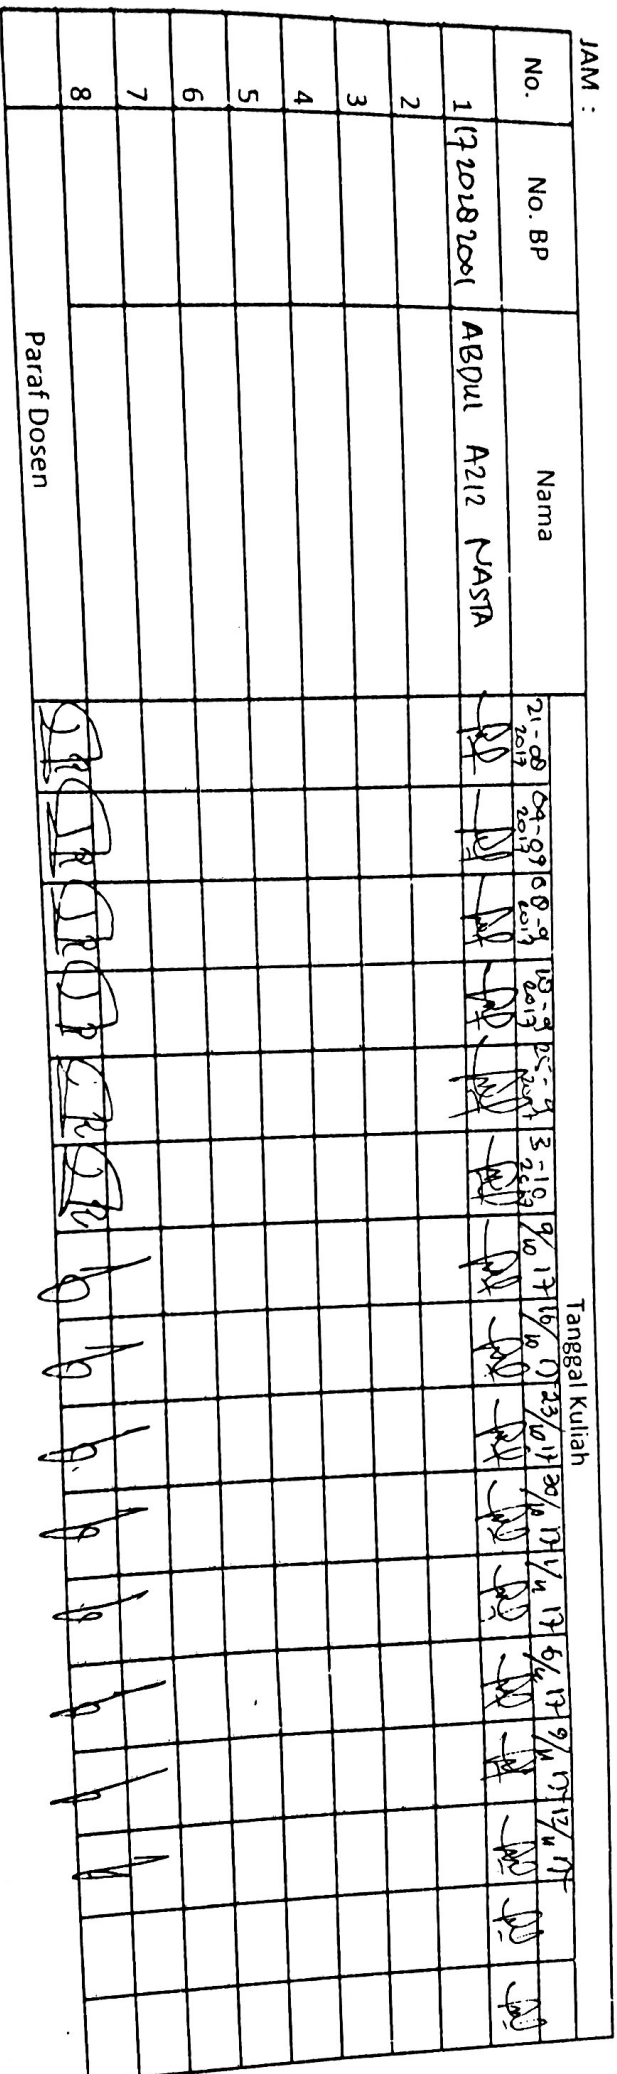 JAM :
No. No. BP Nama Tanggal Kuliah
21-08 2017 04-09 2017 08-9 2017 2017 3-10 2017 9/10 17 16/10 17 23/10 17 30/10 17 1/11 17 6/11 17 9/11 17 13/11 17
1 ABDUL AZIZ NASTA
2
3
4
5
6
7
8
Paraf Dosen